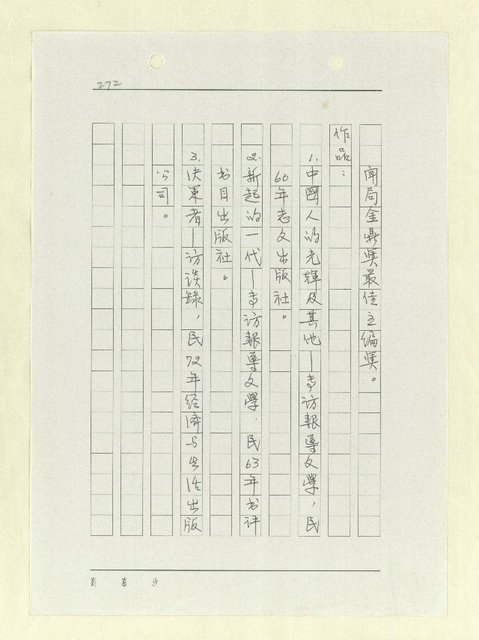 272
聞局金鼎獎最佳主編獎。
作品：
1.中國人的光輝及其他—專訪報導文學，民
60年志文出版社。
2.新起的一代—專訪報導文學．民63年书评
书目出版社。
3.決策者—访谈錄，民72年經濟与生活出版
公司。
劉慕沙